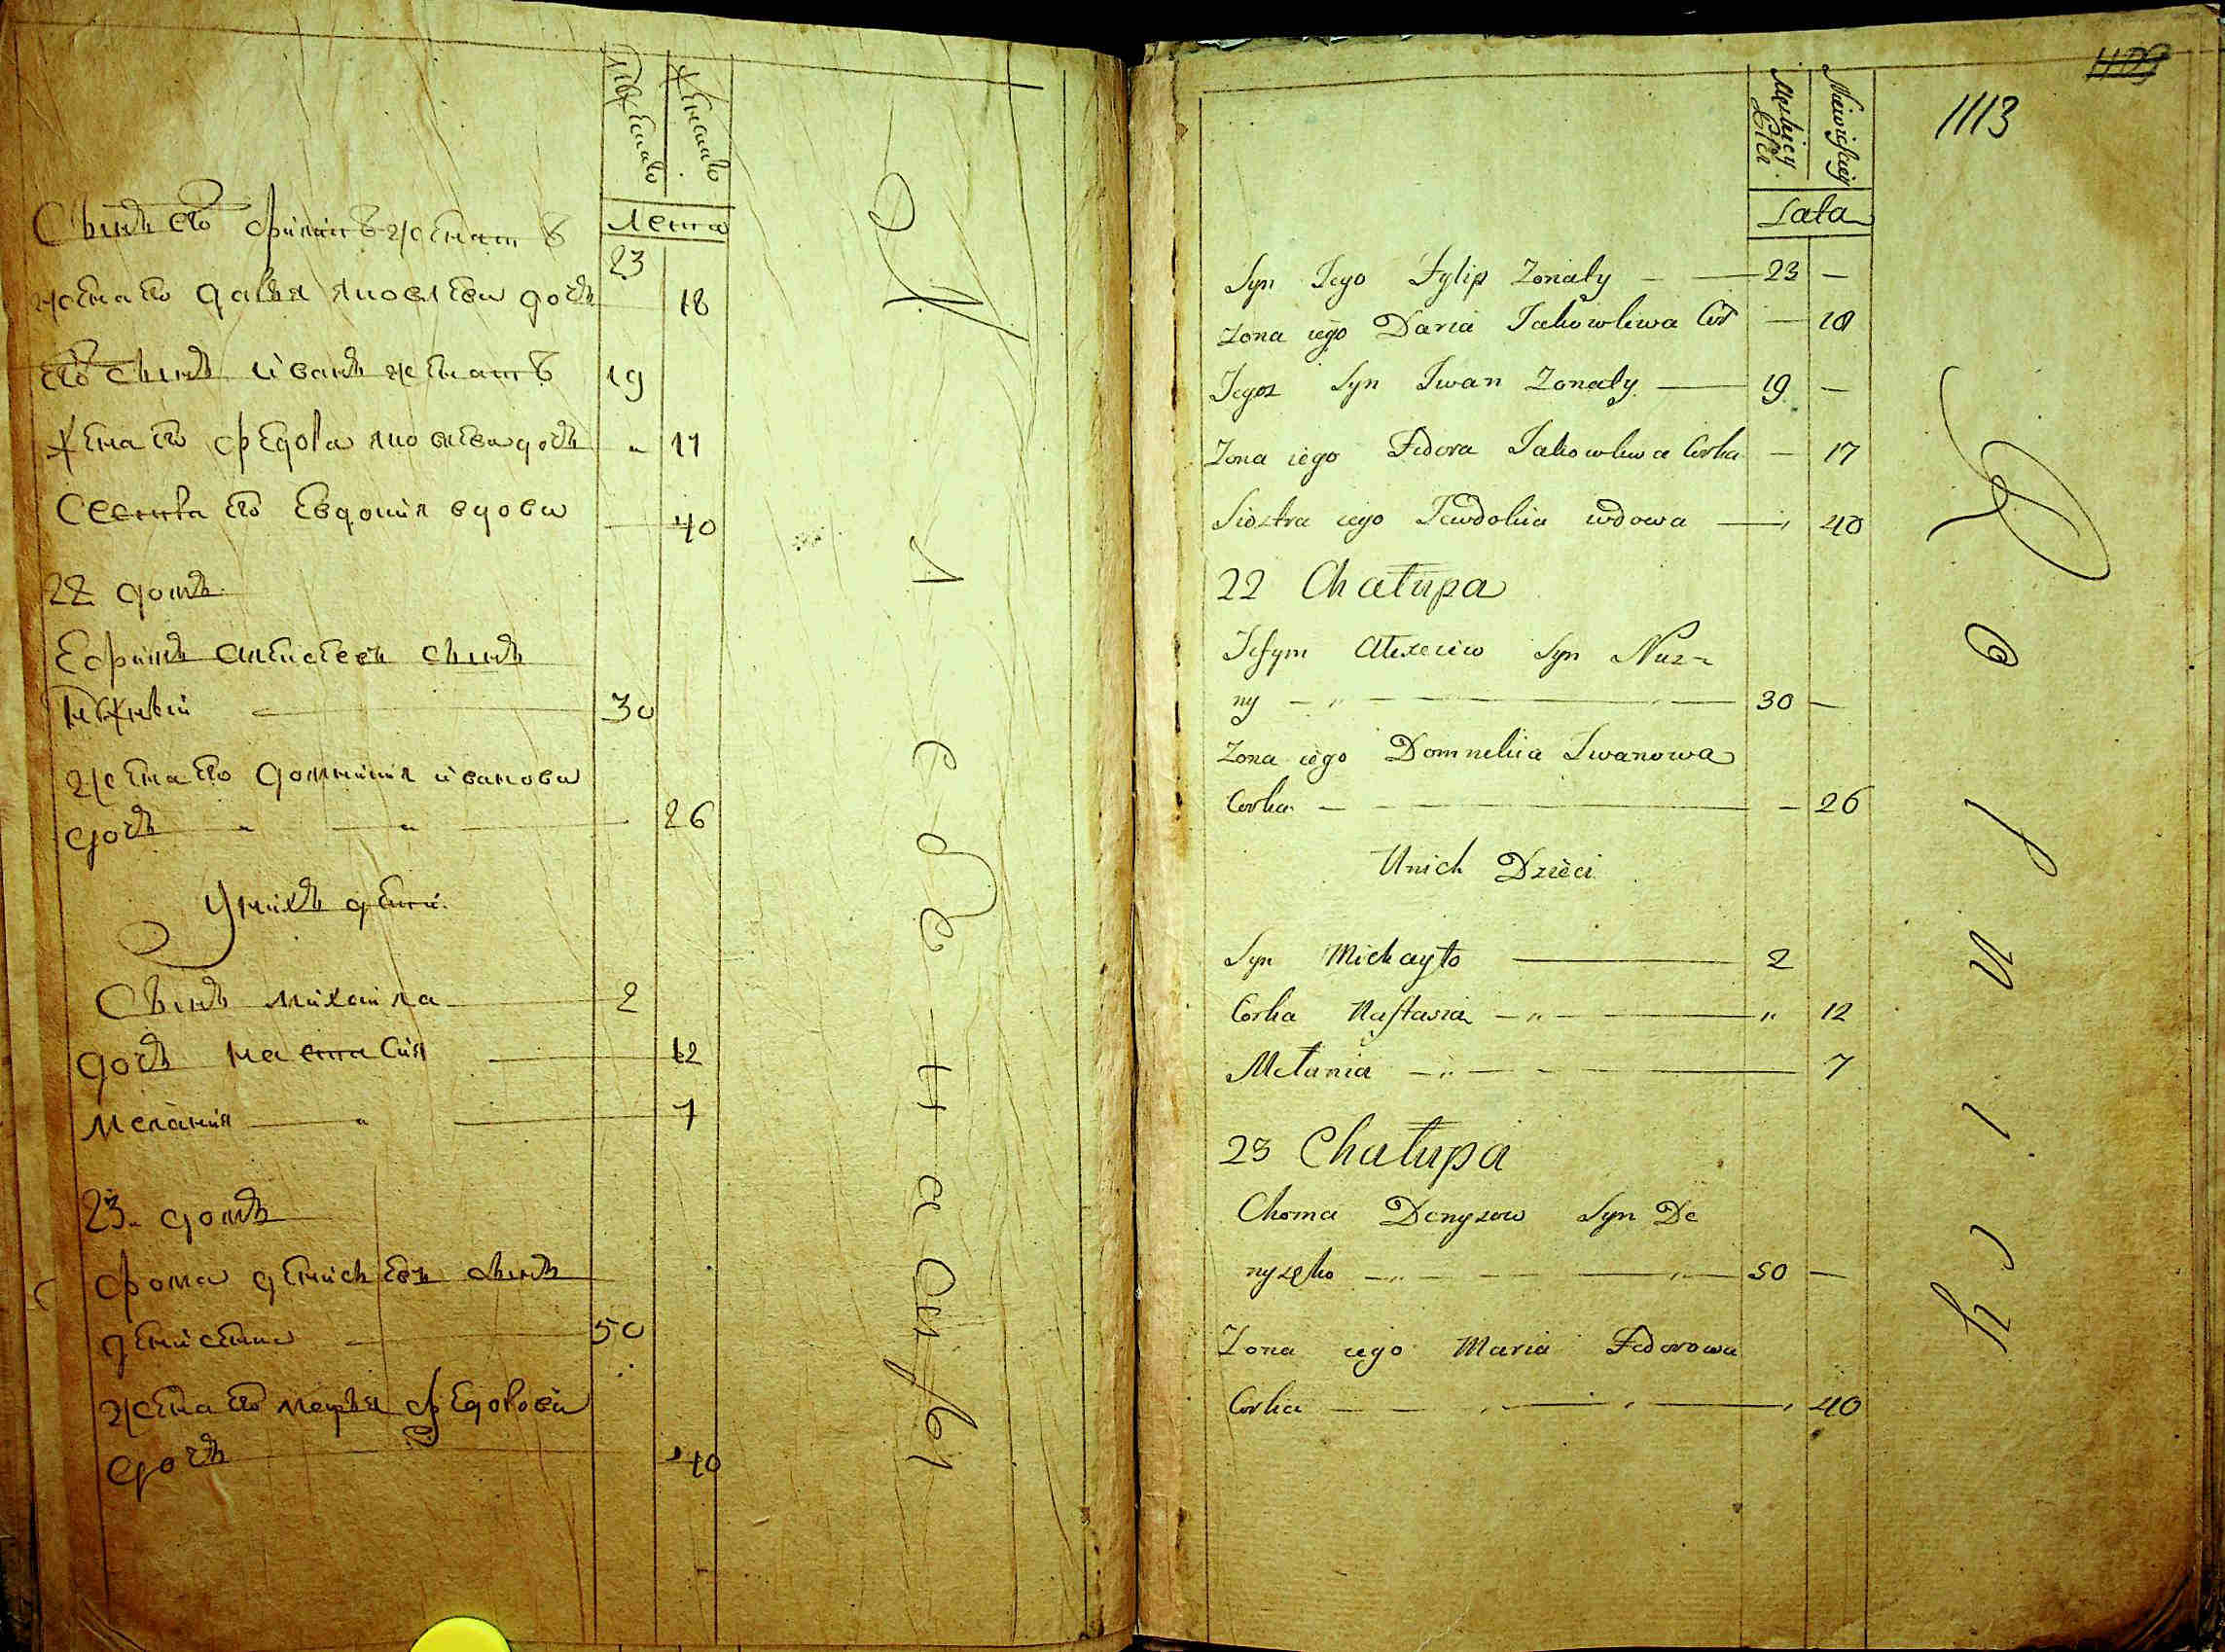 Мужеска
Женска
Лета
Сынъ его Филипъ женатъ 23
жена его Дарья Яковлева дочь 18
его сынъ Иванъ женатъ 19
жена его Федора Яковлева дочь " 17
Сестра его Евдокия вдова 40
22 домъ
Ефимъ Алексеевъ сынъ
Нужный 30
жена его Домникия Иванова
дочь " " 26
У нихъ дети
Сынъ Михайла 2
дочь Настасия 12
Мелания " 7
23 домъ
Фома Денисьевъ сынъ
Денисенко 50
жена его Марья Федорова
дочь 40
1113
Męskiey Płci
Niewieściey
Lata
Syn Jego Fylip Zonaty — 23 —
Zona iego Daria Jakowliwa Cor — 18
Jegoz Syn Iwan Zonaty — 19 —
Zona iego Fedora Jakowliwa Corka — 17
Siostra iego Jewdokia wdowa — " 40
22 Chałupa
Jefym Alexeiew Syn Nuz-
ny — " — 30 —
Zona iego Domnekia Iwanowa
Corka — — 26
Unich Dzieci
Syn Michayło — 2
Corka Nastasia — " — " 12
Mełania — " — 7
23 Chałupa
Choma Denysow Syn De
nyzęko — " — 50 —
Zona iego Maria Fedorowa
Corka — 40